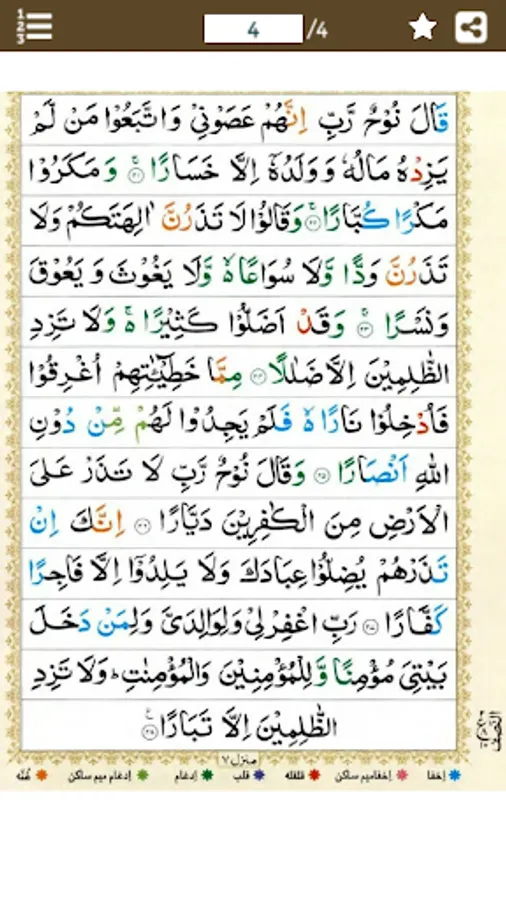 4 /4
قَالَ نُوْحٌ رَّبِّ اِنَّهُمْ عَصَوْنِيْ وَاتَّبَعُوْا مَنْ لَّمْ
يَزِدْهُ مَالُهٗ وَوَلَدُهٗۤ اِلَّا خَسَارًا ۚ‏﴿۲۱﴾ وَ مَكَرُوْا
مَكْرًا كُبَّارًا ۚ‏﴿۲۲﴾ وَقَالُوْا لَا تَذَرُنَّ اٰلِهَتَكُمْ وَلَا
تَذَرُنَّ وَدًّا وَّلَا سُوَاعًا ۙ وَّلَا يَغُوْثَ وَ يَعُوْقَ
وَنَسْرًا ۚ‏﴿۲۳﴾ وَقَدْ اَضَلُّوْا كَثِيْرًا ۚ وَلَا تَزِدِ
الظّٰلِمِيْنَ اِلَّا ضَلٰلًا ﴿۲۴﴾ مِمَّا خَطِيْٓـٰٔتِهِمْ اُغْرِقُوْا
فَاُدْخِلُوْا نَارًا ۙ فَلَمْ يَجِدُوْا لَهُمْ مِّنْ دُوْنِ
اللّٰهِ اَنْصَارًا ﴿۲۵﴾ وَقَالَ نُوْحٌ رَّبِّ لَا تَذَرْ عَلَى
الْاَرْضِ مِنَ الْكٰفِرِيْنَ دَيَّارًا ﴿۲۶﴾ اِنَّكَ اِنْ
تَذَرْهُمْ يُضِلُّوْا عِبَادَكَ وَلَا يَلِدُوْۤا اِلَّا فَاجِرًا
كَفَّارًا ﴿۲۷﴾ رَبِّ اغْفِرْلِيْ وَلِوَالِدَيَّ وَلِمَنْ دَخَلَ
بَيْتِيَ مُؤْمِنًا وَّلِلْمُؤْمِنِيْنَ وَالْمُؤْمِنٰتِ ؕ وَلَا تَزِدِ
الظّٰلِمِيْنَ اِلَّا تَبَارًا ﴿۲۸﴾
منزل ۷
اخفا اخفامیم ساکن قلقله قلب ادغام ادغام میم ساکن غنّه